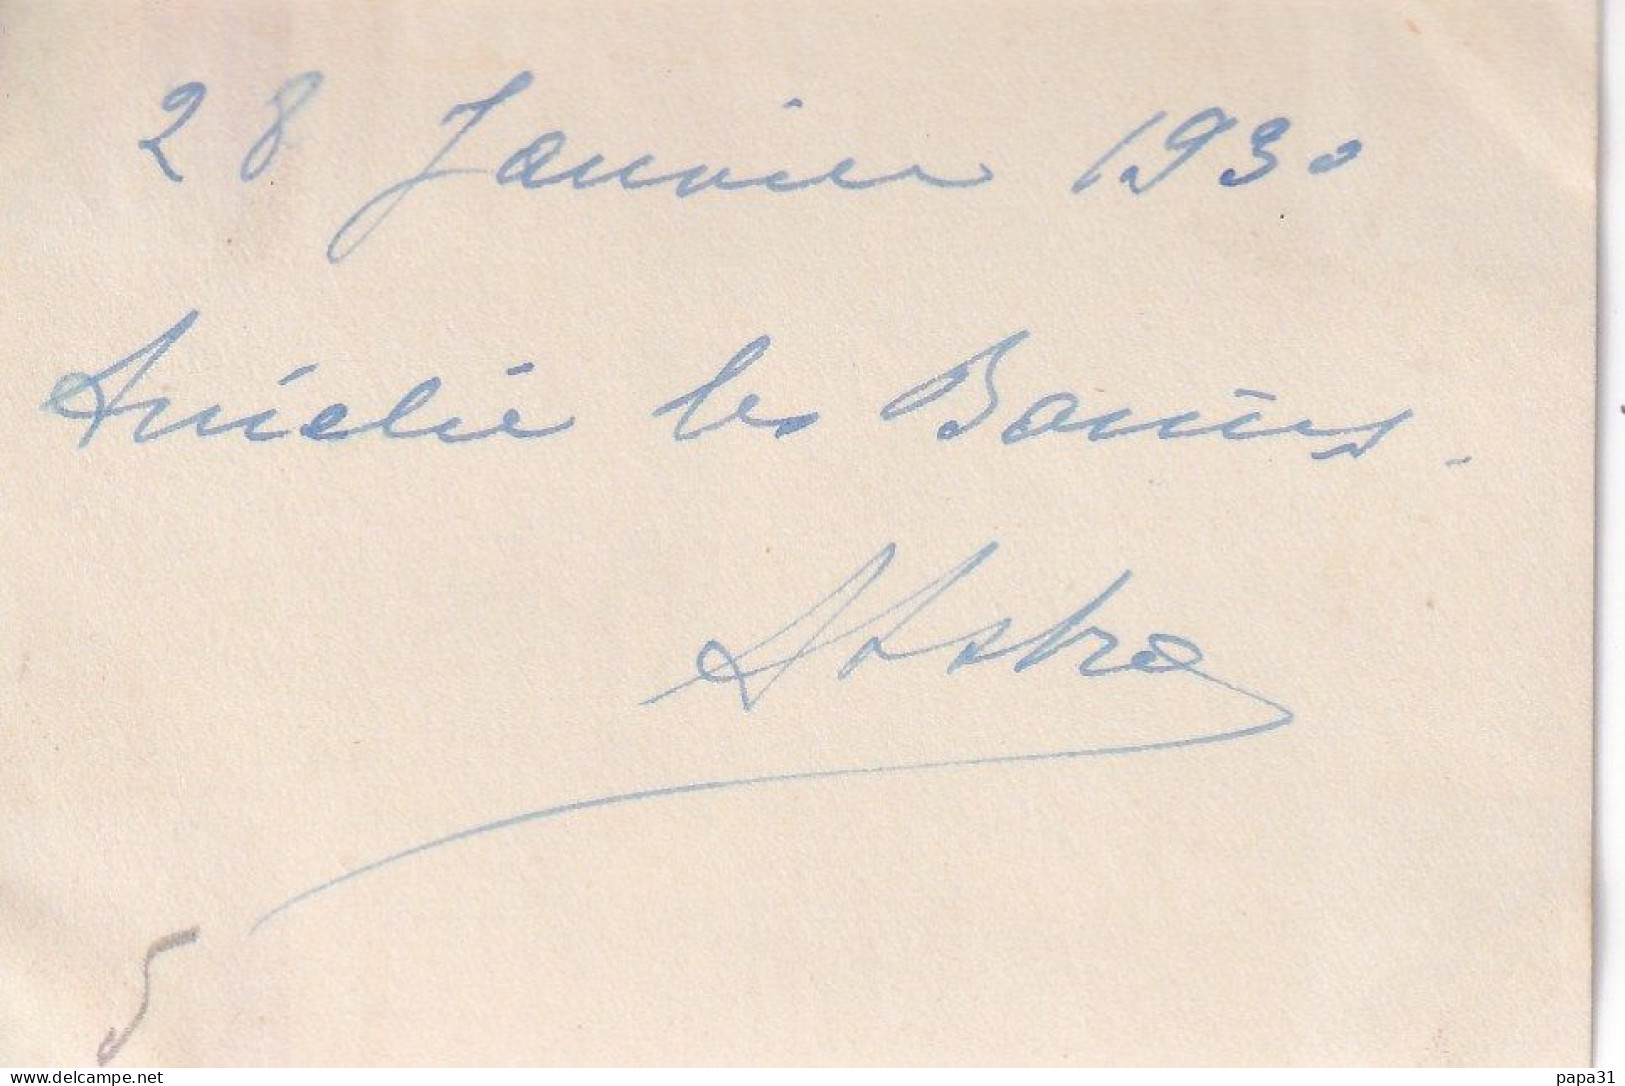 28 Janvier 1930
Amélie les Bains.
5
www.delcampe.net
papa31